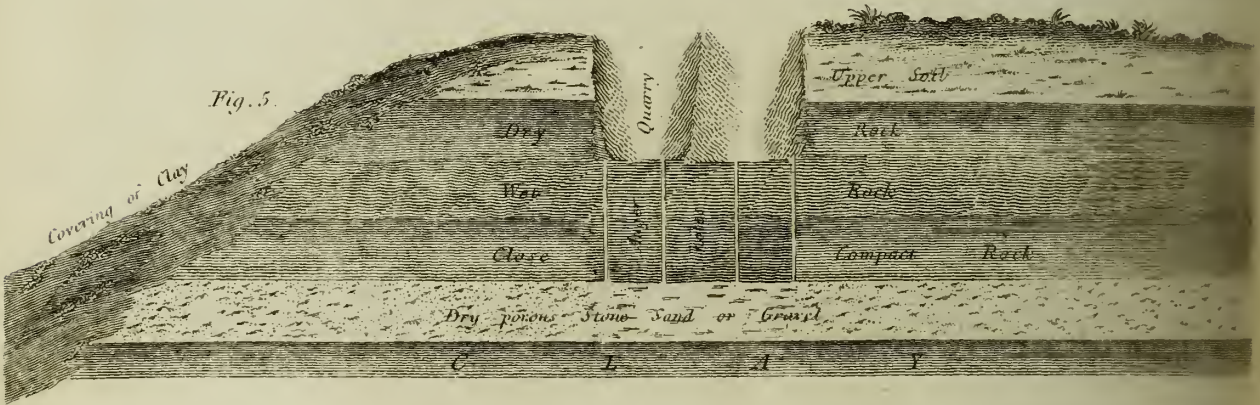 Fig. 5.
Covering of Clay
Quarry
Upper Soil
Dry Rock
Wet Rock
Auger Holes
Close Compact Rock
Dry porous Stone Sand or Gravel
CLAY